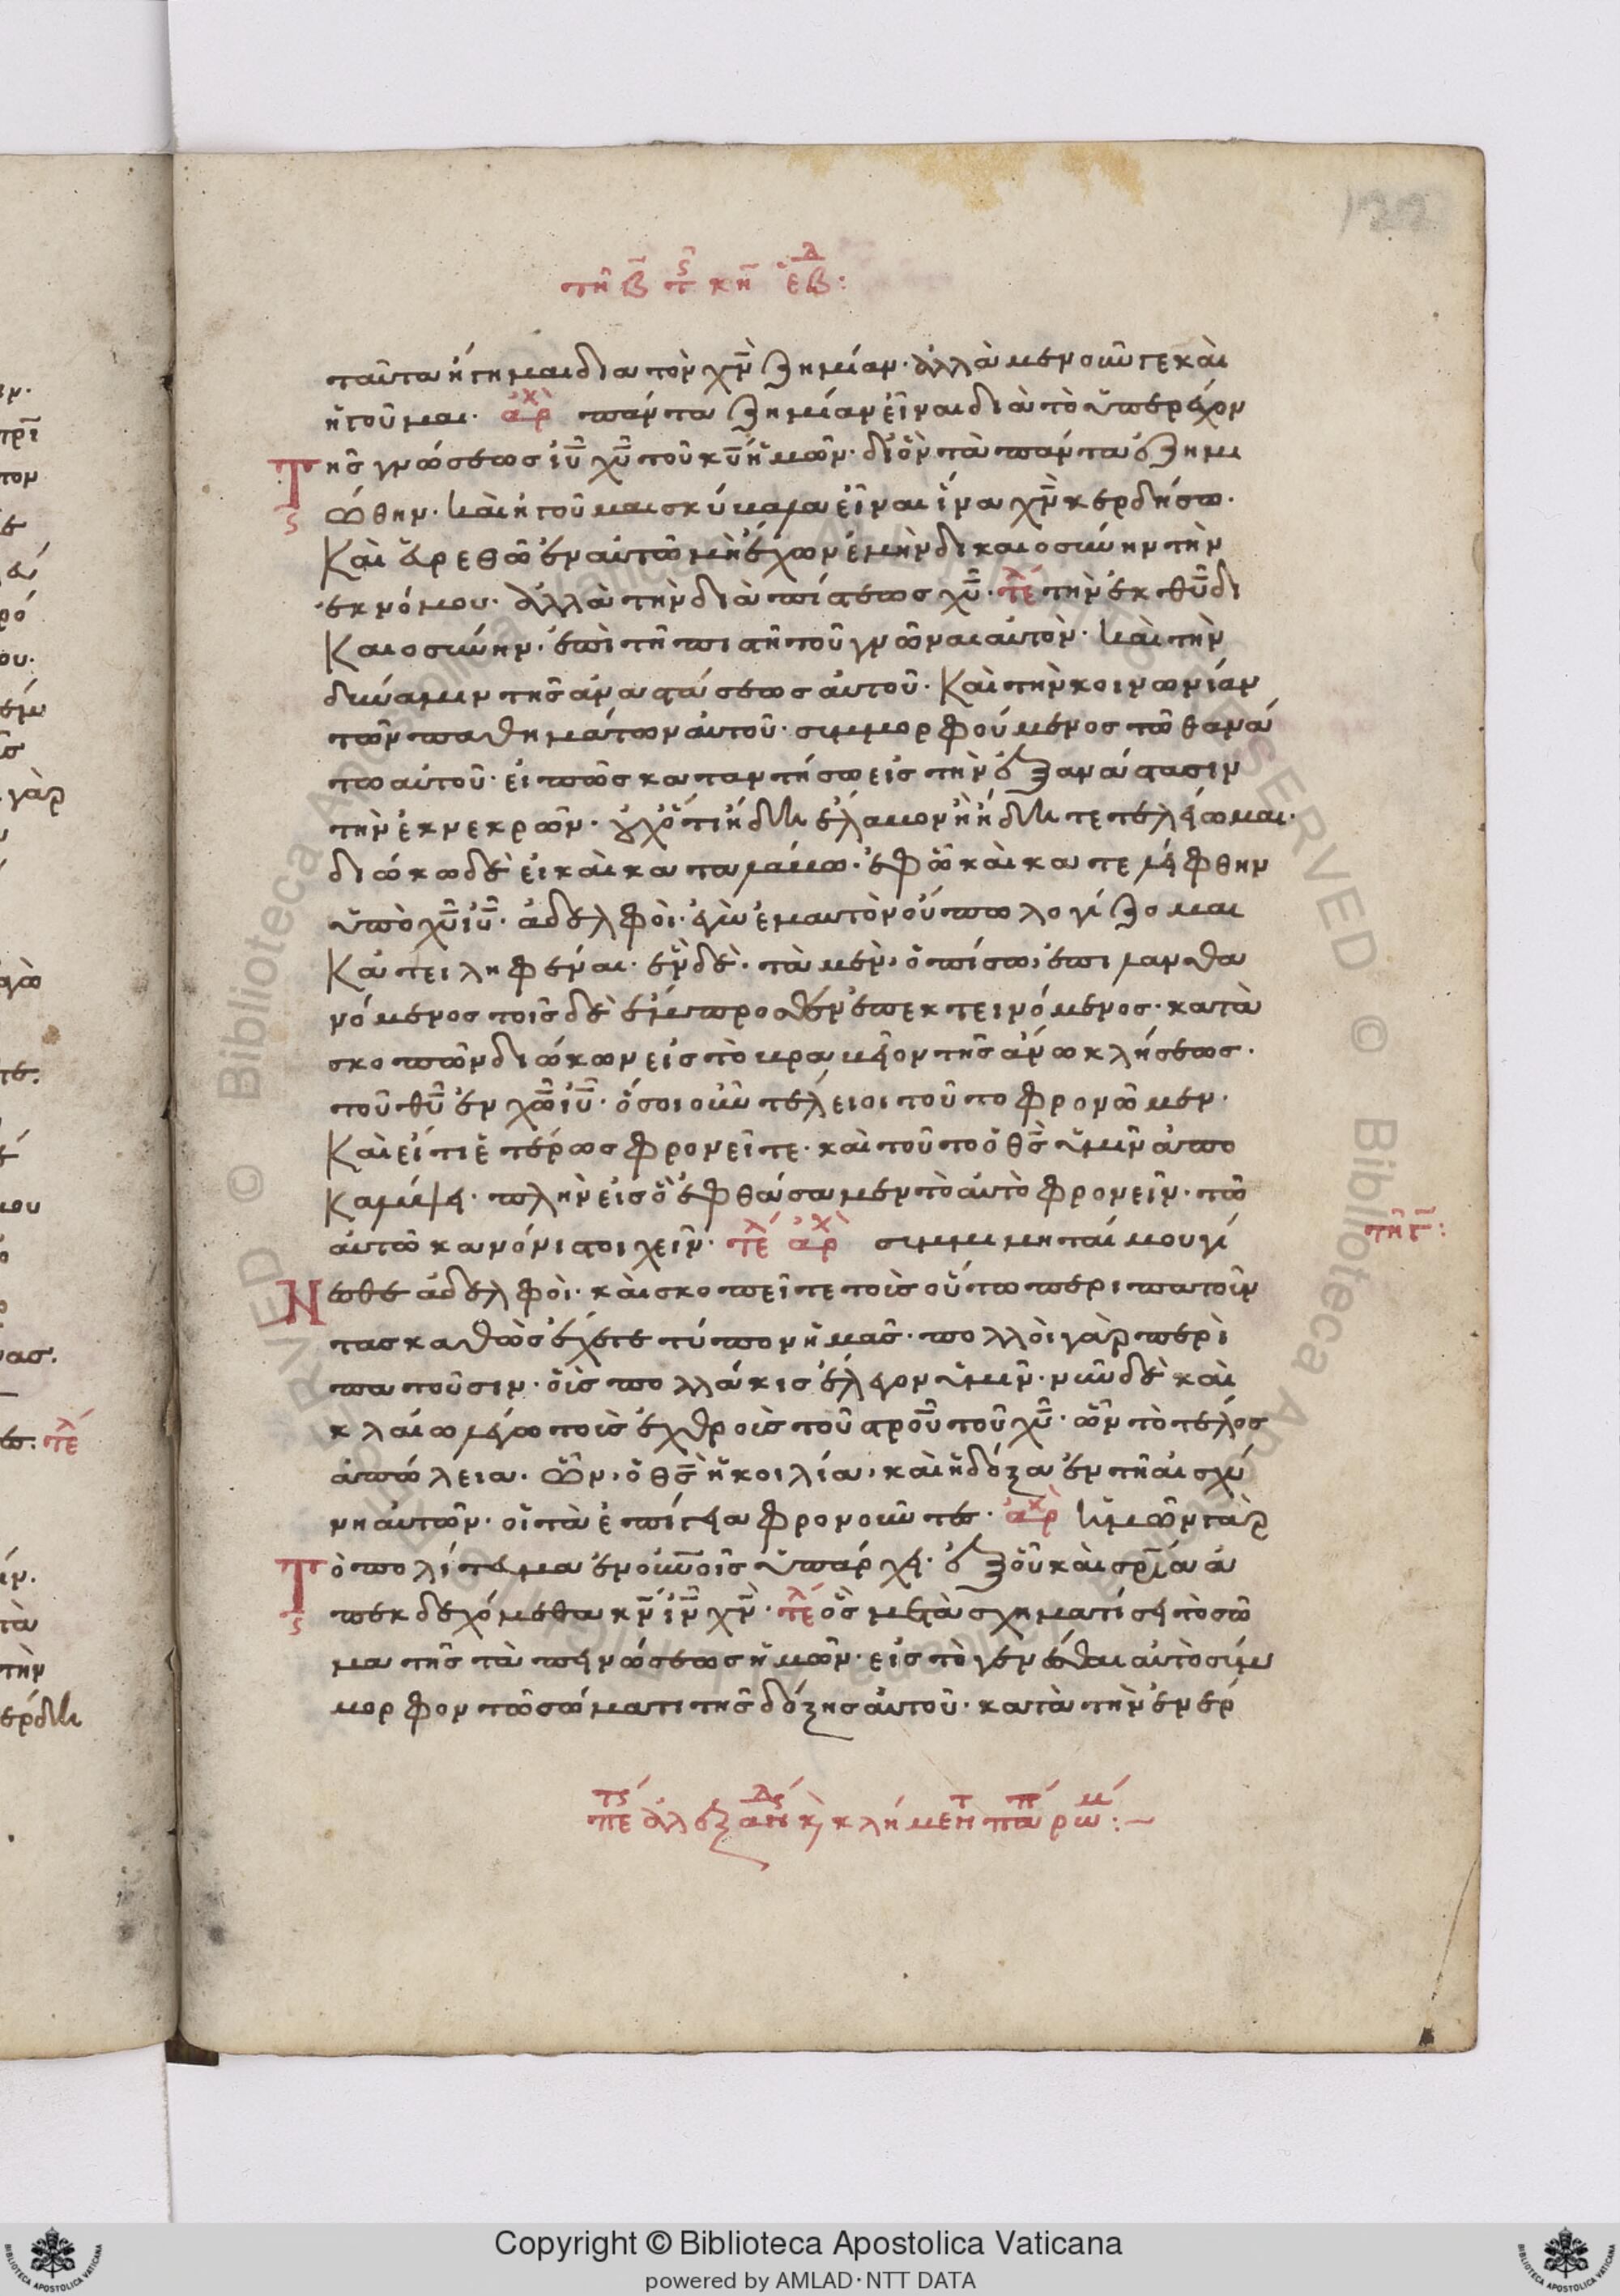 122
τῆ β̅ τ̅ς κη̅ ἑβδ:
ταῦτα ἥγημαι δια τὸν χν̅ ζημίαν· ἀλλὰ μὲν οὖν γε καὶ
ἡγοῦμαι· ἀρχ πάντα ζημίαν εἶναι διὰ τὸ ὑπερέχον
Τῆς γνώσεως ιυ̅ χυ̅ τοῦ κυ̅ ἡμῶν· δι ὃν τὰ πάντα ἐζημι
ς
ώθην· καὶ ἡγοῦμαι σκύβαλα εἶναι ἵνα χν̅ κερδήσω·
Καὶ εὑρεθῶ ἐν αὐτῶ μὴ ἔχων ἐμὴν δικαιοσύνην τὴν
ἐκ νόμου· ἀλλὰ τὴν διὰ πίστεως χυ̅· τελ τὴν ἐκ θυ̅ δι
Καιοσύνην· ἐπὶ τῆ πίστη τοῦ γνῶναι αὐτὸν· καὶ τὴν
δύναμιν τῆς ἀναστάσεως αὐτοῦ· Καὶ τὴν κοινωνίαν
τῶν παθημάτων αὐτοῦ· συμμορφούμενος τῶ θανά
τω αὐτοῦ· εἰ πῶς καταντήσω εἰς τὴν ἐξανάστασιν
τὴν ἐκ νεκρῶν· οὐχ ὅτι ἤδη ἔλαβον ἢ ἤδη τετελείωμαι·
διώκω δὲ εἰ καὶ καταλάβω· ἐφ ὧ καὶ κατελήφθην
ὑπὸ χυ̅ ιυ̅· ἀδελφοὶ· ἐγὼ ἐμαυτὸν οὔπω λογίζομαι
Κατειληφέναι· ἓν δὲ· τὰ μὲν, ὀπίσω, ἐπιλανθα
νόμενος τοῖς δὲ ἔμπροσθεν ἐπεκτεινόμενος· κατὰ
σκοπῶν διώκων εἰς τὸ βραβεῖον τῆς ἄνω κλήσεως·
τοῦ θυ̅ ἐν χω̅ ιυ̅· ὅσοι οὖν τέλειοι τοῦτο φρονῶμεν·
Καὶ εἴ τι ἑτέρως φρονεῖτε· καὶ τοῦτο ὁ θς̅ ὑμῖν ἀπο
Καλύψει· πλὴν εἰς ὃ ἐφθάσαμεν τὸ αὐτὸ φρονεῖν· τῶ
αὐτῶ κανόνι στοιχεῖν· τελ ἀρχ συμμιμηταί μου γί
τῆ γ̅:
Νεσθε ἀδελφοὶ· καὶ σκοπεῖτε τοὺς οὕτω περιπατοῦν
τας καθὼς ἔχετε τύπον ἡμᾶς· πολλοὶ γὰρ περι
πατοῦσιν· οὓς πολλάκις ἔλεγον ὑμῖν· νῦν δὲ καὶ
κλαίω λέγω τοὺς ἐχθροὺς τοῦ στρου̅ τοῦ χυ̅· ὧν τὸ τέλος
ἀπώλεια· ὧν, ὁ θς̅ ἡ κοιλία, καὶ ἡ δόξα ἐν τῆ αἰσχύ
νη αὐτῶν· οἱ τὰ ἐπίγεια φρονοῦντες· ἀρχ ἡμῶν γὰρ
Τὸ πολίτευμα ἐν οὐνοῖς ὑπάρχει· ἐξ οὗ καὶ σρι̅α ἀ
ς
πεκδεχόμεθα κν̅ ιν̅ χν̅· τελ ὃς μετασχηματίσει τὸ σῶ
μα τῆς ταπεινώσεως ἡμῶν· εἰς τὸ γενέσθαι αὐτὸ σύμ
μορφον τῶ σώματι τῆς δόξης αὐτοῦ· κατὰ τὴν ἐνερ
ἀλεξανδ κ κλήμεντ παπ ρωμ: